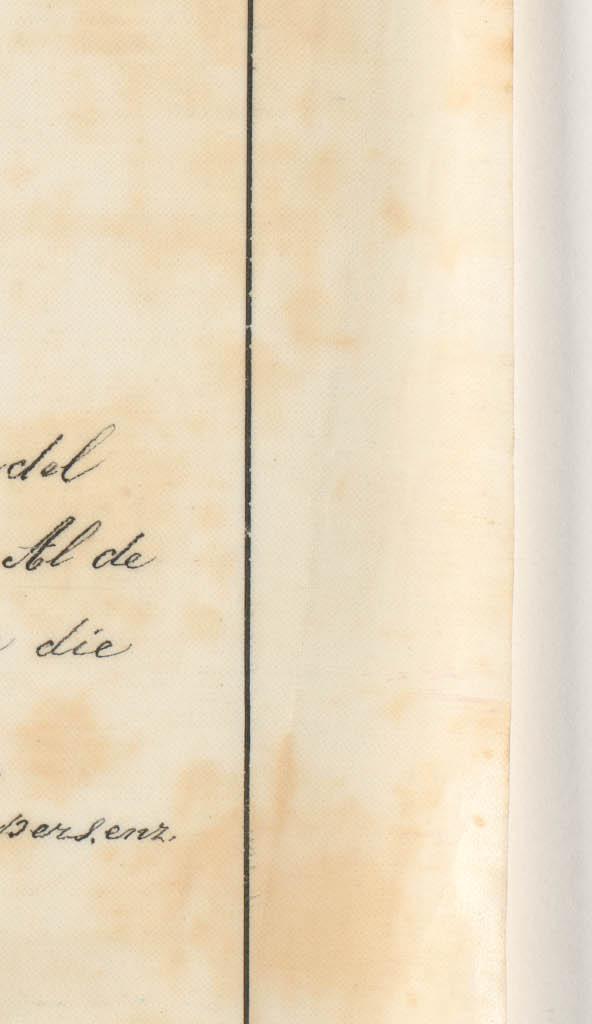 del
Al de
die
pers. enz.